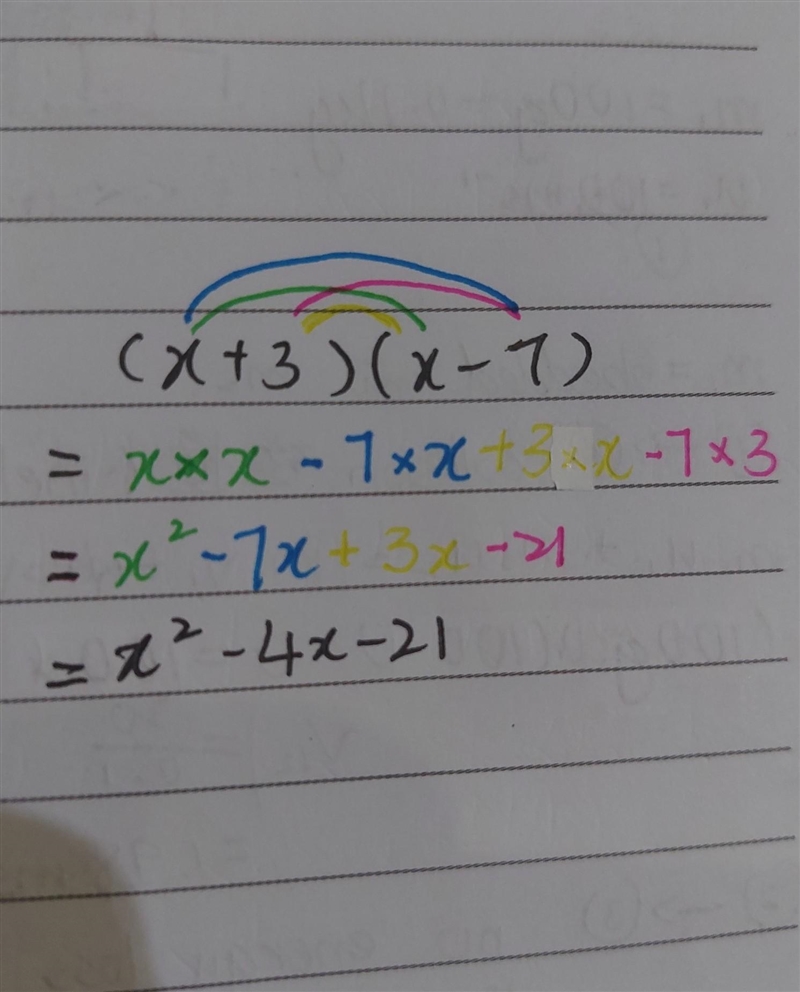 (x+3)(x-7)
= x×x -7×x +3×x -7×3
= x² -7x + 3x -21
= x² -4x -21